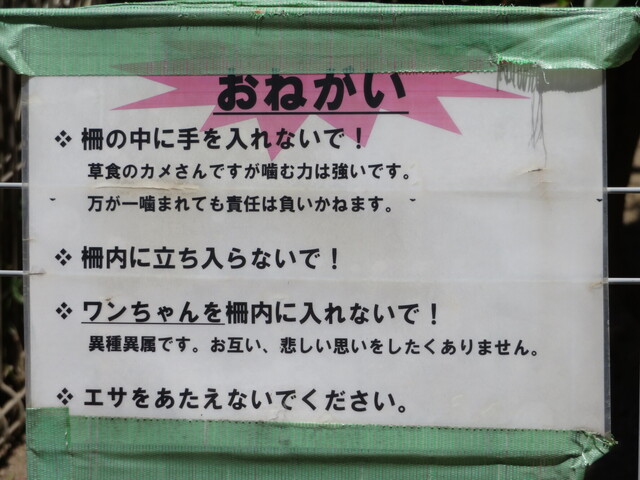 おねがい
❖ 柵の中に手を入れないで！
草食のカメさんですが噛む力は強いです。
万が一噛まれても責任は負いかねます。
❖ 柵内に立ち入らないで！
❖ ワンちゃんを柵内に入れないで！
異種異属です。お互い、悲しい思いをしたくありません。
❖ エサをあたえないでください。